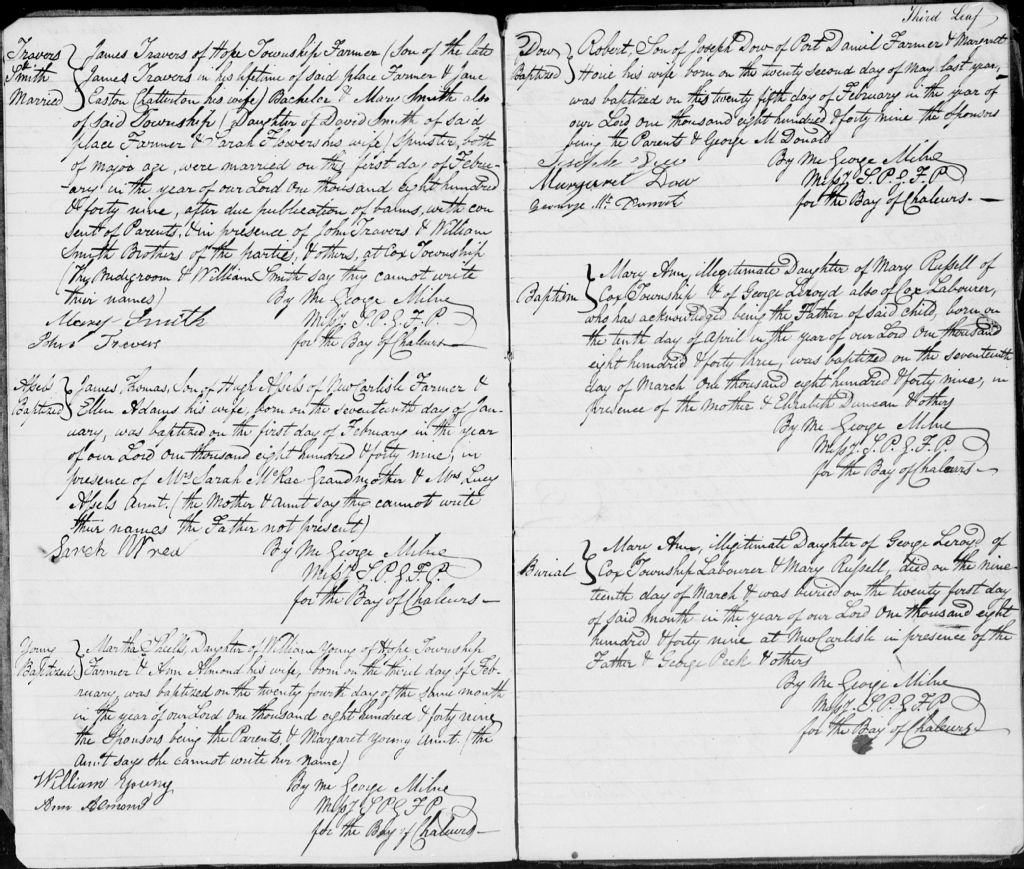 Travers
&
Smith
Married
James Travers of Hope Township Farmer (Son of the late
James Travers in his lifetime of said place Farmer & Jane
Easton Chatterton his wife) Bachelor & Mary Smith also
of said Township (Daughter of David Smith of said
place Farmer & Sarah Flowers his wife) Spinster, both
of major age, were married on the first day of Febru-
ary in the year of our Lord One thousand eight hundred
& forty nine, after due publication of banns, with con
sent of Parents, & in presence of John Travers & William
Smith Brothers of the parties, & others, at Cox Township
(The Bridegroom & William Smith say they cannot write
their names) By Me George Milne
Mary Smith Missy. S.P.G.F.P.
John Travers for the Bay of Chaleurs
Assels
Baptized
James Thomas, Son of Hugh Assels of New Carlisle Farmer &
Ellen Adams his wife, born on the seventeenth day of Jan-
uary, was baptized on the first day of February in the year
of our Lord One thousand eight hundred & forty nine, in
presence of Mrs. Sarah McRae Grandmother & Mrs Lucy
Assels Aunt. (the Mother & Aunt say they cannot write
their names the Father not present)
Sarah By Me George Milne
Missy. S.P.G.F.P.
for the Bay of Chaleurs
Young
Baptized
Martha Shells, Daughter of William Young of Hope Township
Farmer & Ann Almond his wife, born on the third day of Feb-
ruary, was baptized on the twenty fourth day of the same month
in the year of our Lord One thousand eight hundred & forty nine
the Sponsors being the Parents, & Margaret Young Aunt. (the
Aunt says she cannot write her name)
William Young By Me George Milne
Ann Almond Missy. S.P.G.F.P.
for the Bay of Chaleurs
Third Leaf
Dow
Baptized
Robert, Son of Joseph Dow of Port Daniel Farmer & Margrett
his wife born on the twenty second day of May last year,
was baptized on this twenty fifth day of February in the year of
our Lord One thousand eight hundred & forty nine the Sponsors
being the Parents & George McDonald
By Me George Milne
Margaret Dow Missy. S.P.G.F.P.
George for the Bay of Chaleurs
Baptism
Mary Ann, illegitimate Daughter of Mary Russell of
Cox Township & of George Leroyd also of Cox Labourer,
who has acknowledged being the Father of said child, born on
the tenth day of April in the year of our Lord One thousand
eight hundred & forty three, was baptized on the seventeenth
day of March One thousand eight hundred & forty nine, in
presence of the Mother & Elizabeth Duncan & others
By Me George Milne
Missy. S.P.G.F.P.
for the Bay of Chaleurs
Burial
Mary Ann, illegitimate Daughter of George Leroyd of
Cox Township Labourer & Mary Russell, died on the nine-
teenth day of March & was buried on the twenty first day
of said month in the year of our Lord One thousand eight
hundred & forty nine at New Carlisle in presence of the
Father & George Peek & others
By Me George Milne
Missy. S.P.G.F.P.
for the Bay of Chaleurs